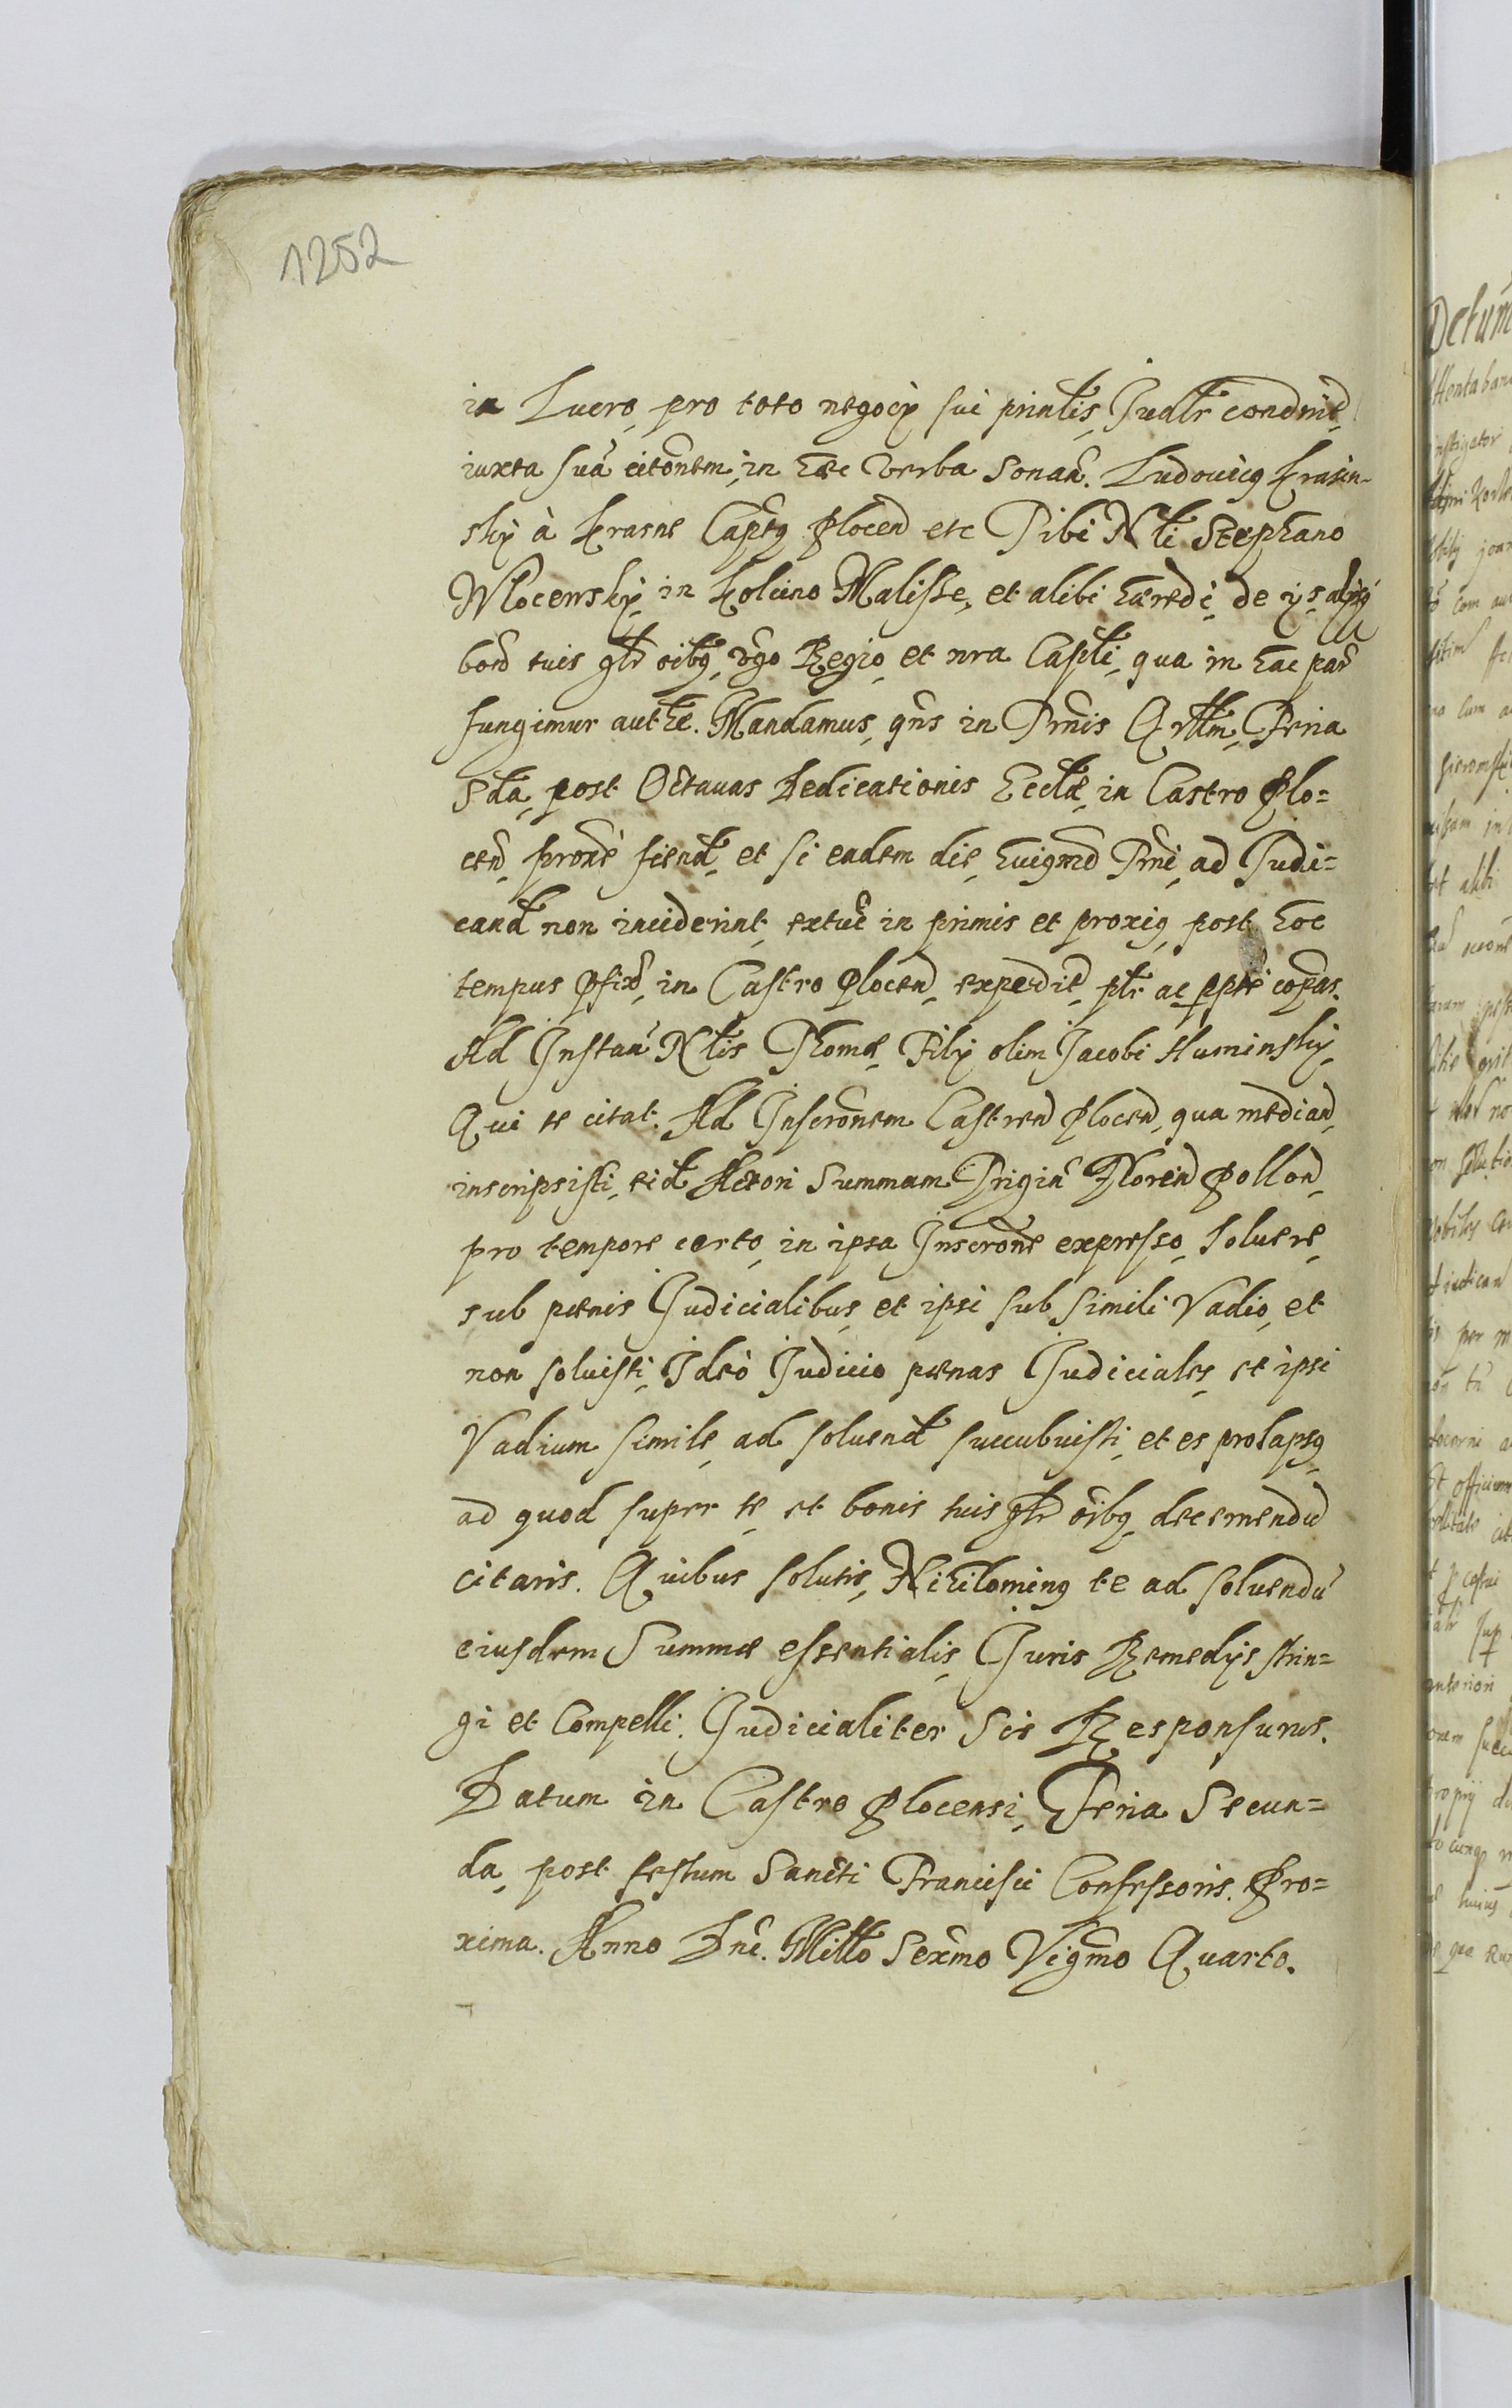 1252
in Lucro, pro toto negocy sui prinłis, Judłr condmđ,
iuxta suā citōnem, in haec verba sonañ. Ludouicq Krasin-
sky à Krasne Capitq Plocen̄ etc Tibi Nłi Stephano
Wlocensky, in Kolcino Malisze, et alibi haeredi, de ys, alysq
bon̄ tuis głr oibq, vgo Regio, et nra Capłi, qua in hac par̃
fungimur authe. Mandamus, qns in Trnis Qrłłm, Feria
Sda, post Octauas Dedicationis Eccłæ, in Castro Plo=
cen̄, proxe fiend, et si eadem die, huigmd Trni, ad Judi=
cand non inciderint, extuc in primis et proxiq, post hoc
tempus pfix̄, in Castro Plocen̄, expedid, płr ac pptē copas.
Ad Instañ Nłis Thomæ, Fily olim Jacobi Huminsky,
Qui te citat. Ad Inscrōnem Castren̄ Plocen̄, qua median̄,
inscripsisti, eid Actori Summam Trigin̄ Floren̄ Pollon̄,
pro tempore certo, in ipsa Inscrōne expresso, soluere,
sub pænis Judicialibus, et ipsi sub simili Vadio, et
non soluisti, Ideò Judicio pænas Judiciales, et ipsi
Vadium simile, ad soluend succubuisti, et es prolapsq,
ad quod super te, et bonis tuis głr oibq, decernendū
citaris. Quibus solutis, Nihilominq te ad soluendū
eiusdem Summæ essentialis, Juris Remedys strin=
gi et Compelli. Judicialiter sis Responsurus.
Datum in Castro Plocensi, Feria Secun=
da, post festum Sancti Francisci Confessoris. Pro=
xima. Anno Dni. Millo Sexmo Vigmo Quarto.